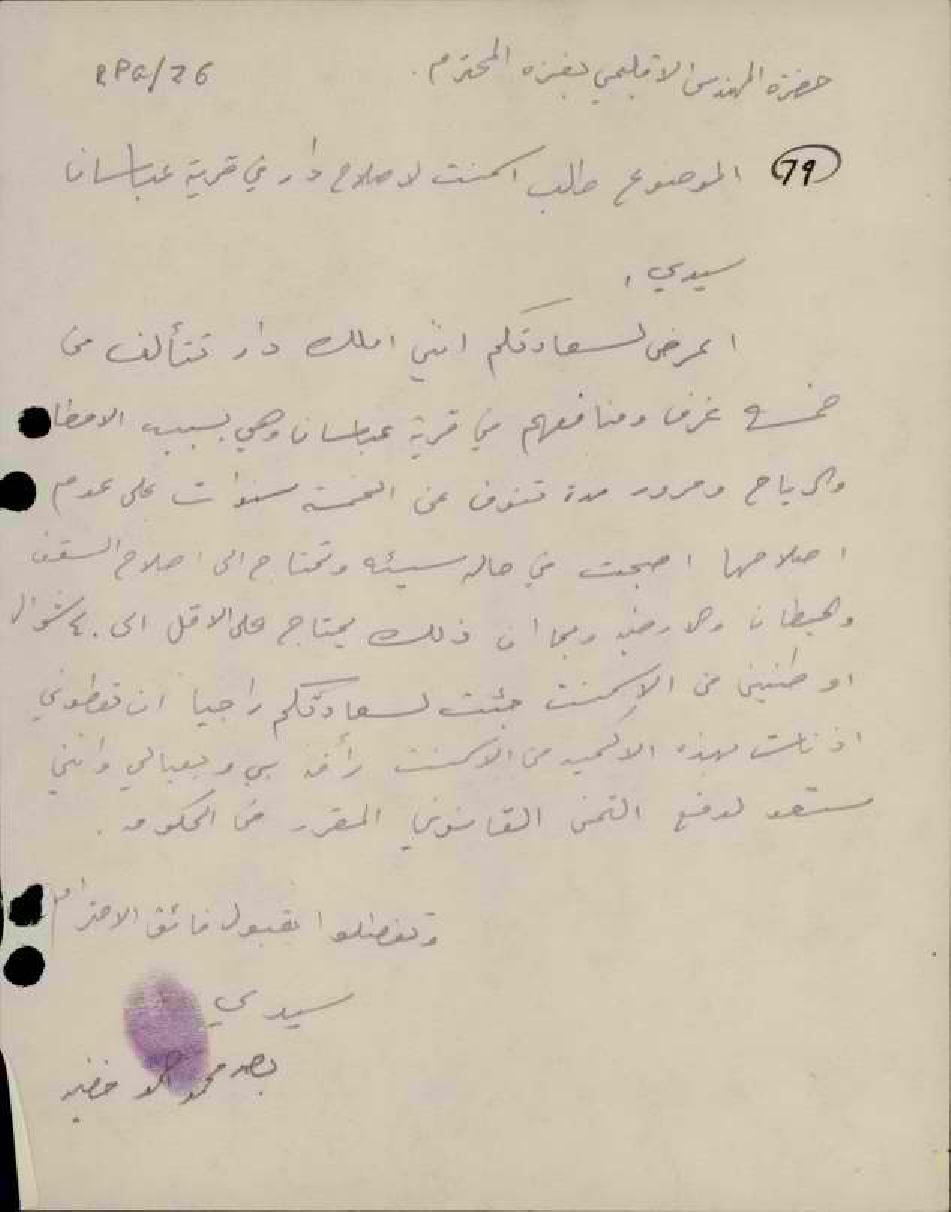 RPG/26
حضرة المهندس الاقليمي بغزه المحترم.
79
الموضوع طلب اسمنت لاصلاح دار في قرية عباسان
سيدي،
اعرض لسعادتكم انني املك دار تتألف من
خمسه غرف ومنافعهم في قرية عباسان وهي بسبب الامطار
والرياح ومرور مدة تنوف عن الخمسة سنوات على عدم
اصلاحها اصبحت في حاله سيئه وتحتاج الى اصلاح السقف
والحيطان والارضيه وبما ان ذلك يحتاج على الاقل الى ٤٠ شوال
او طنين من الاسمنت جئت لسعادتكم راجيا ان تعطوني
اذنا بهذه الكميه من الاسمنت رأفة بي وبعيالي وانني
مستعد لدفع الثمن القانوني المقرر من الحكومه.
وتفضلوا بقبول فائق الاحترام
سيدي
بصمة محمد احمد